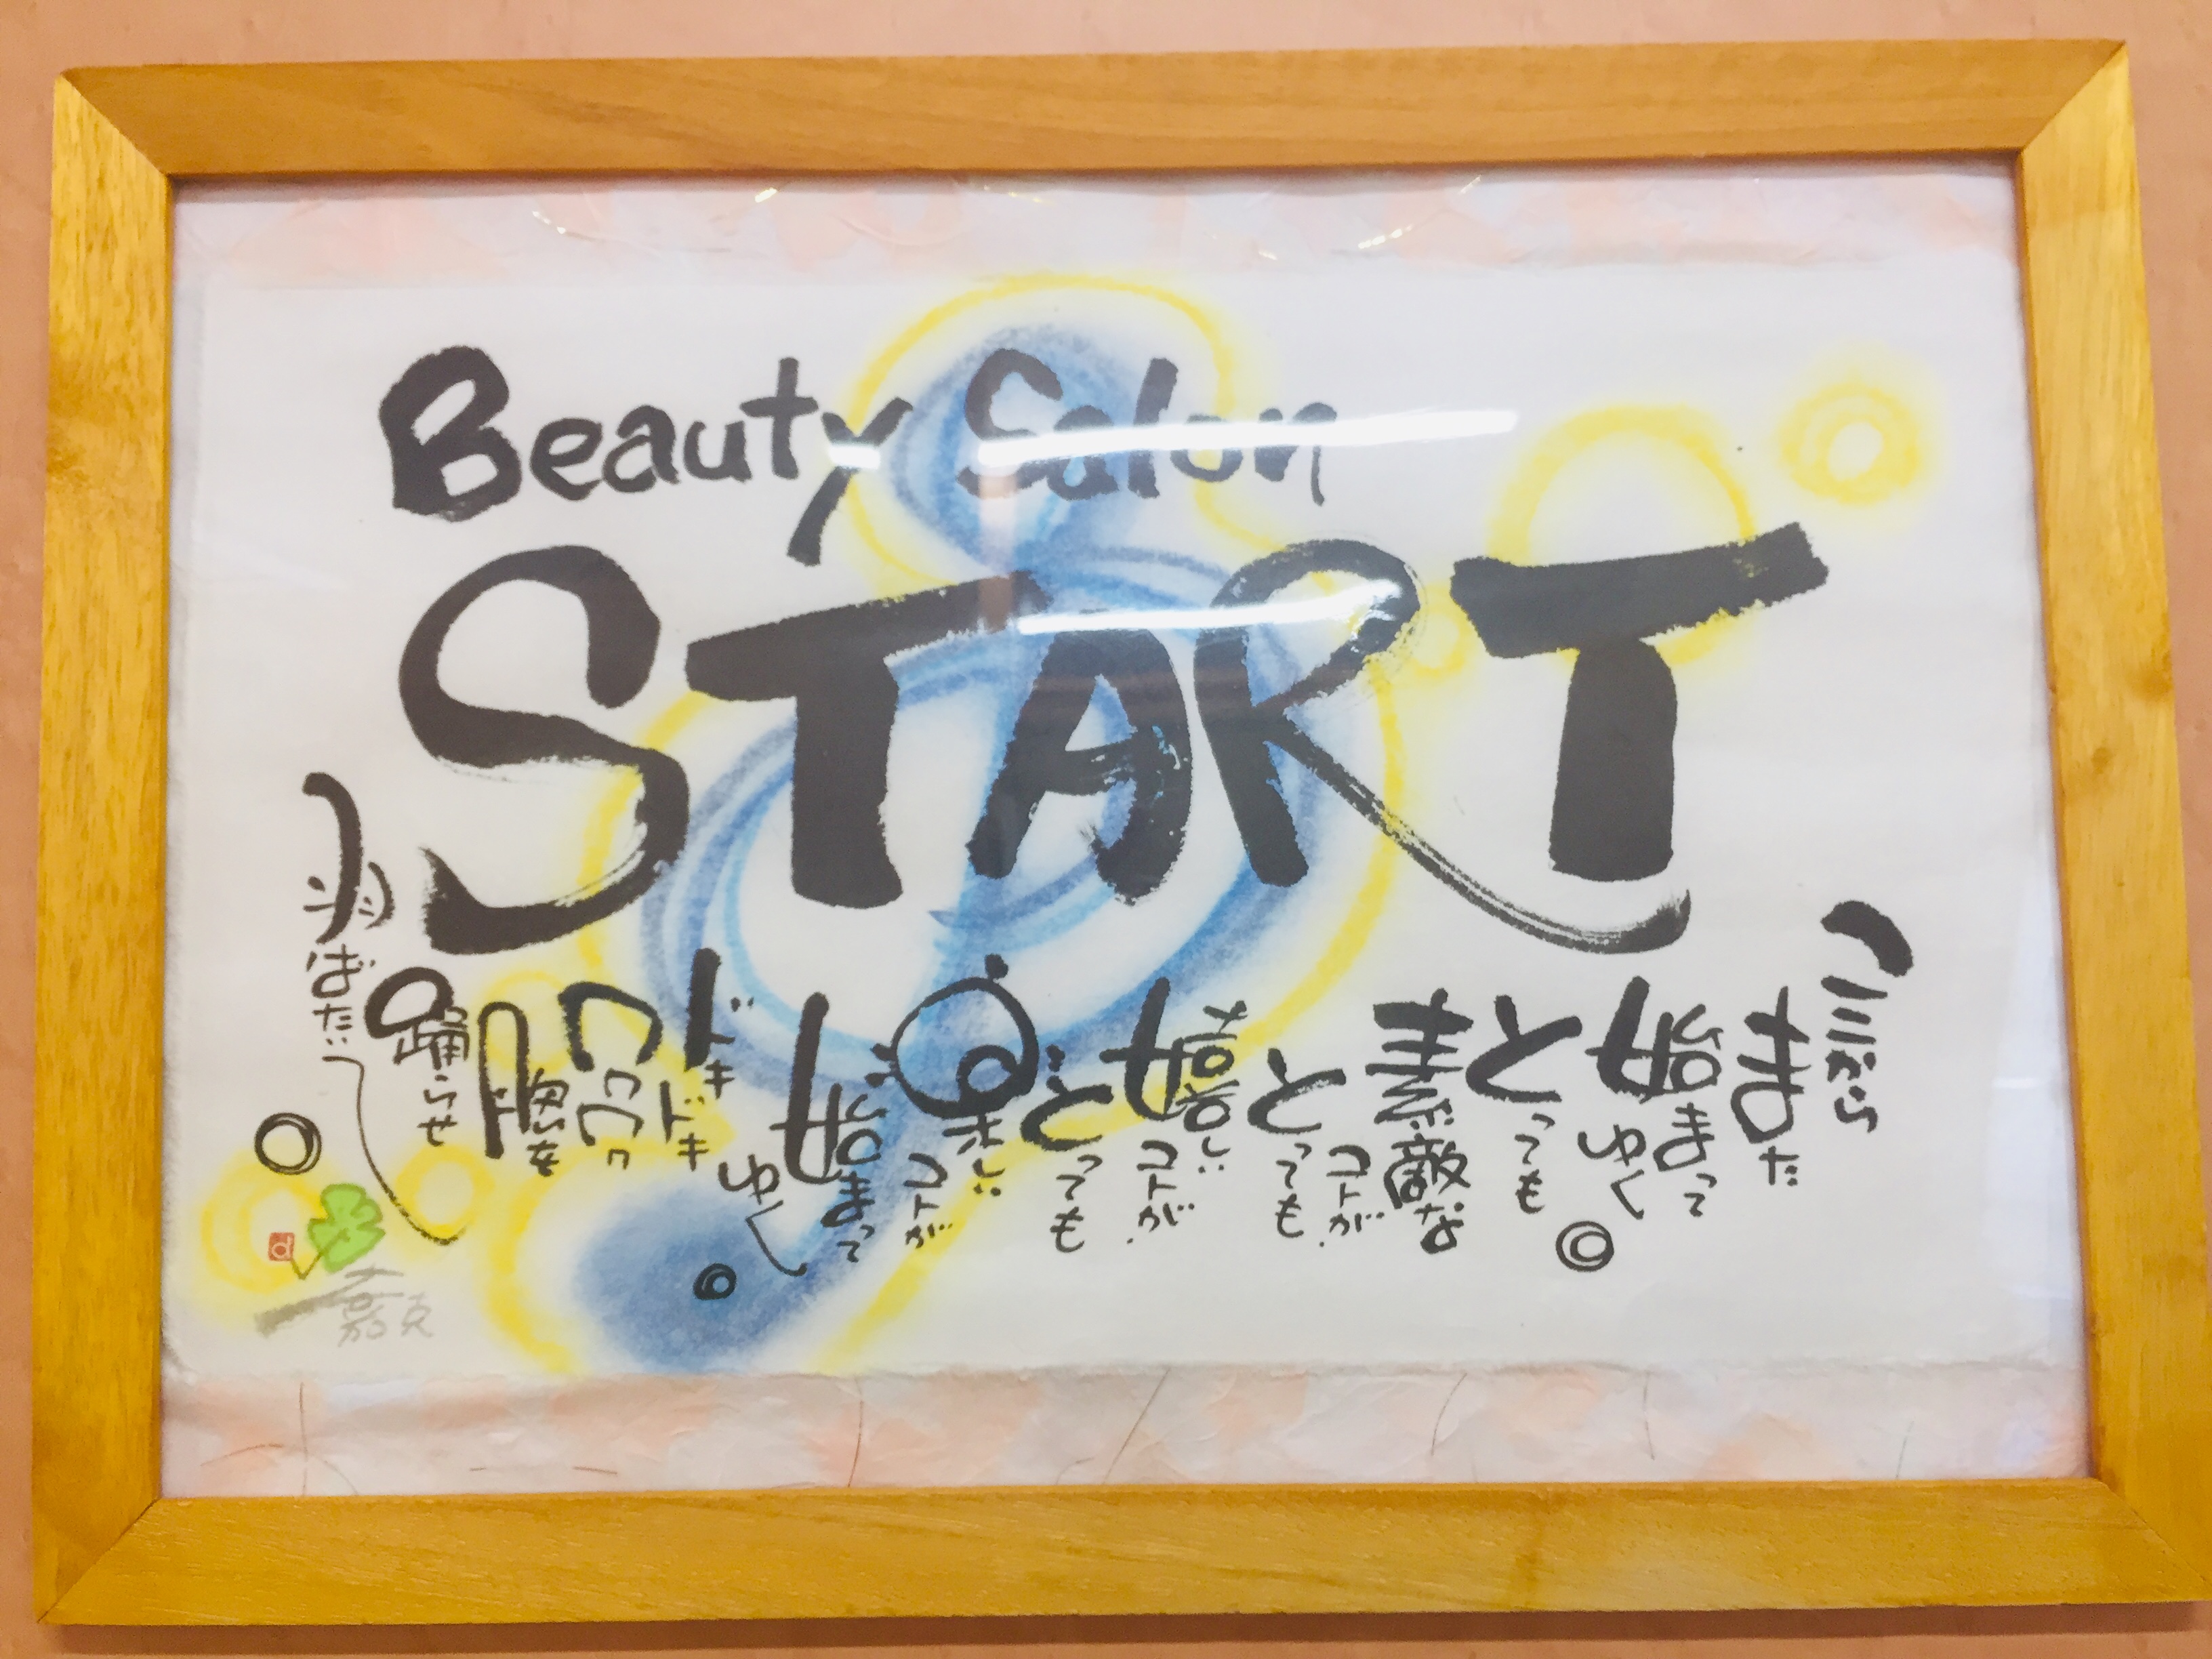 Beauty Salon
START
ここから
また
始まって
ゆく
とっても
素敵な
コトが
とっても
嬉しい
コトが
とっても
楽しい
コトが
始まって
ゆく
ドキ
ドキ
ワク
ワク
胸を
踊らせ
羽ばたい